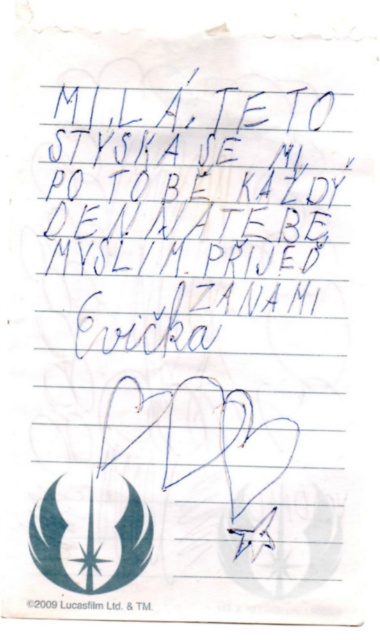 MILÁ TETO
STÝSKÁ SE MI
PO TOBĚ KAŽDÝ
DEN NA TEBE
MYSLIM PŘIJEĎ
ZA NAMI
Evička
©2009 Lucasfilm Ltd. & TM.